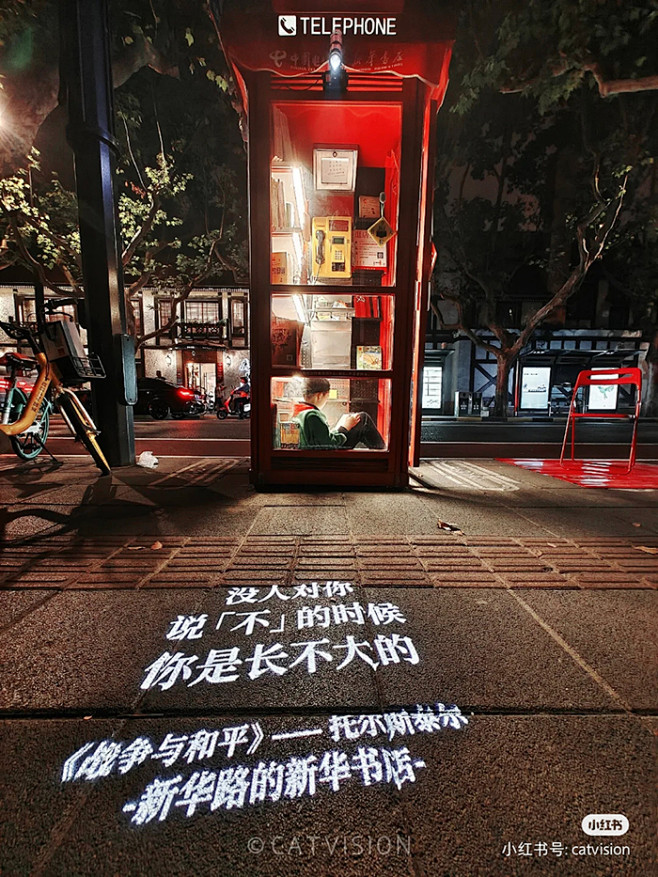 TELEPHONE
没人对你
说「不」的时候
你是长不大的
《战争与和平》—— 托尔斯泰尔
-新华路的新华书店-
©CATVISION
小红书
小红书号: catvision